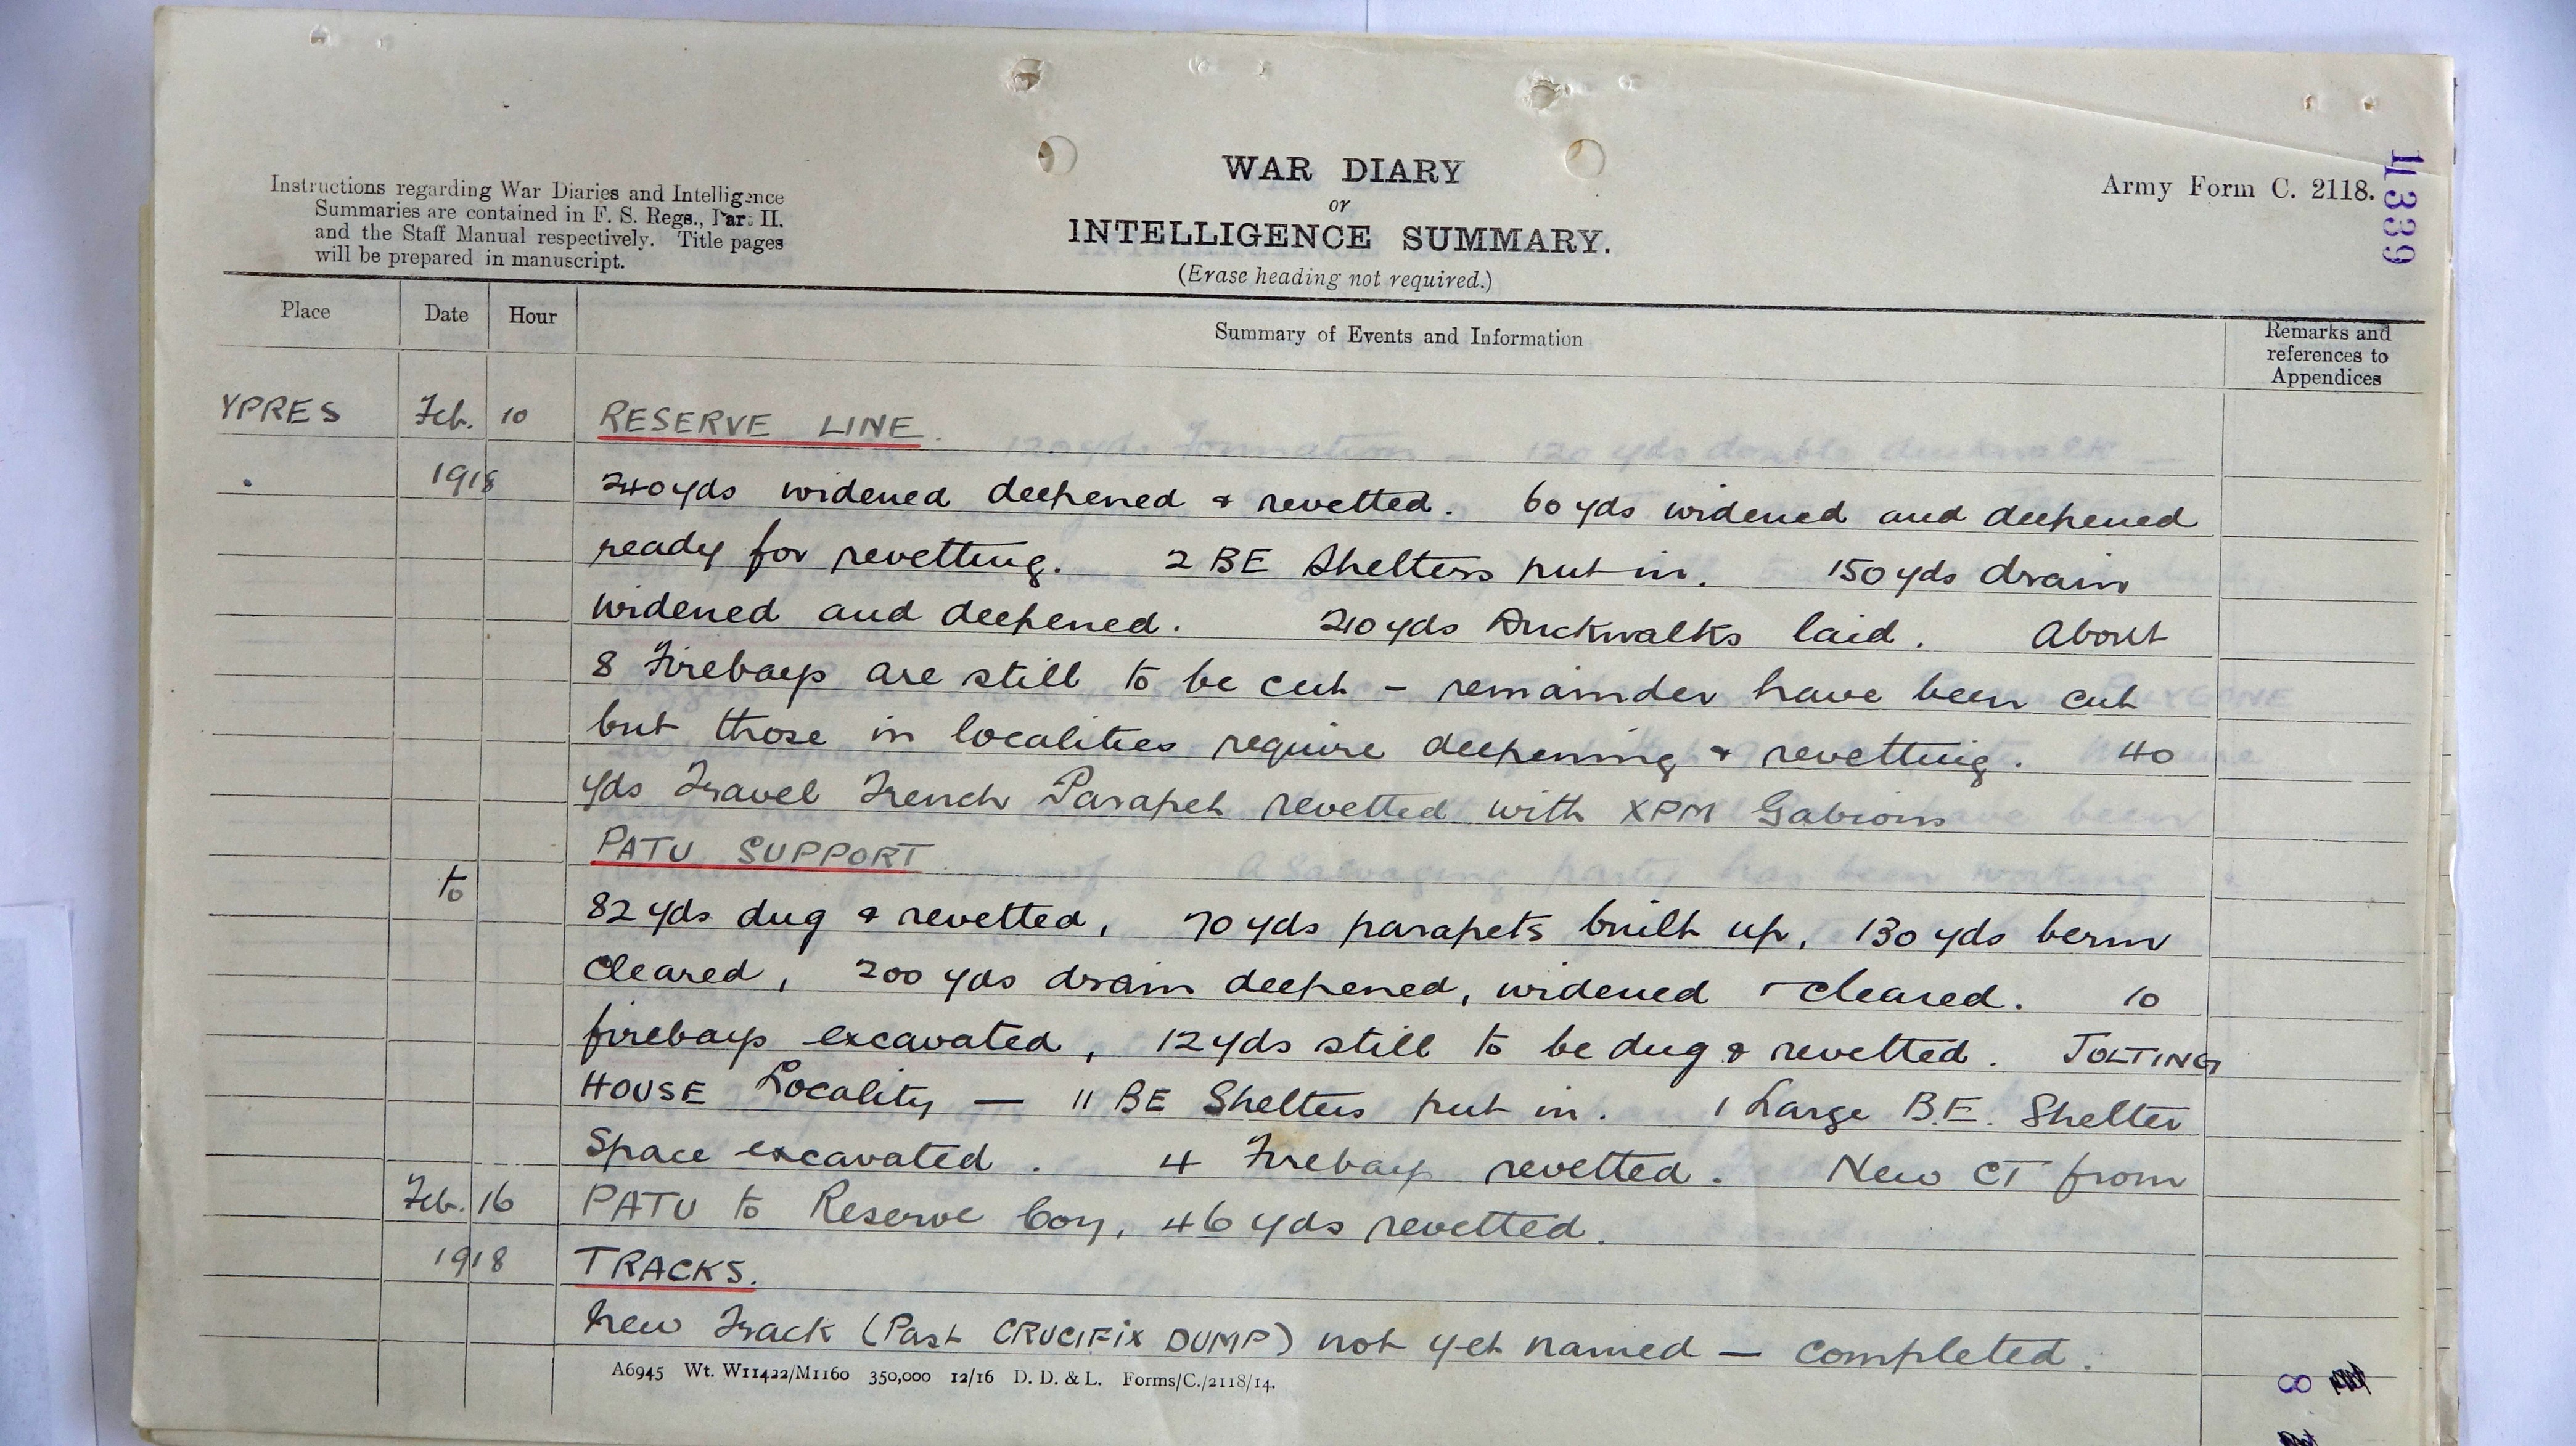 Instructions regarding War Diaries and Intelligence
Summaries are contained in F. S. Regs., Part II.
and the Staff Manual respectively. Title pages
will be prepared in manuscript.
WAR DIARY
or
INTELLIGENCE SUMMARY.
(Erase heading not required.)
Army Form C. 2118.
11339
Place Date Hour Summary of Events and Information Remarks and references to Appendices
YPRES Feb. 10 RESERVE LINE.
1918 240 yds widened deepened & revetted. 60 yds widened and deepened
ready for revetting. 2 BE Shelters put in. 150 yds drain
widened and deepened. 210 yds Duckwalks laid. About
8 Firebays are still to be cut - remainder have been cut
but those in localities require deepening & revetting. 40
yds Travel Trench Parapet revetted with XPM Gabions
PATU SUPPORT
to
82 yds dug & revetted, 70 yds parapets built up, 130 yds berm
cleared, 200 yds drain deepened, widened & cleared. 10
firebays excavated, 12 yds still to be dug & revetted. JOLTING
HOUSE Locality — 11 BE Shelters put in. 1 Large B.E. Shelter
Space excavated. 4 Firebays revetted. New CT from
Feb. 16 PATU to Reserve Coy, 46 yds revetted.
1918 TRACKS.
New Track (Past CRUCIFIX DUMP) not yet named — completed.
A6945 Wt. W11422/M1160 350,000 12/16 D. D. & L. Forms/C./2118/14.
8